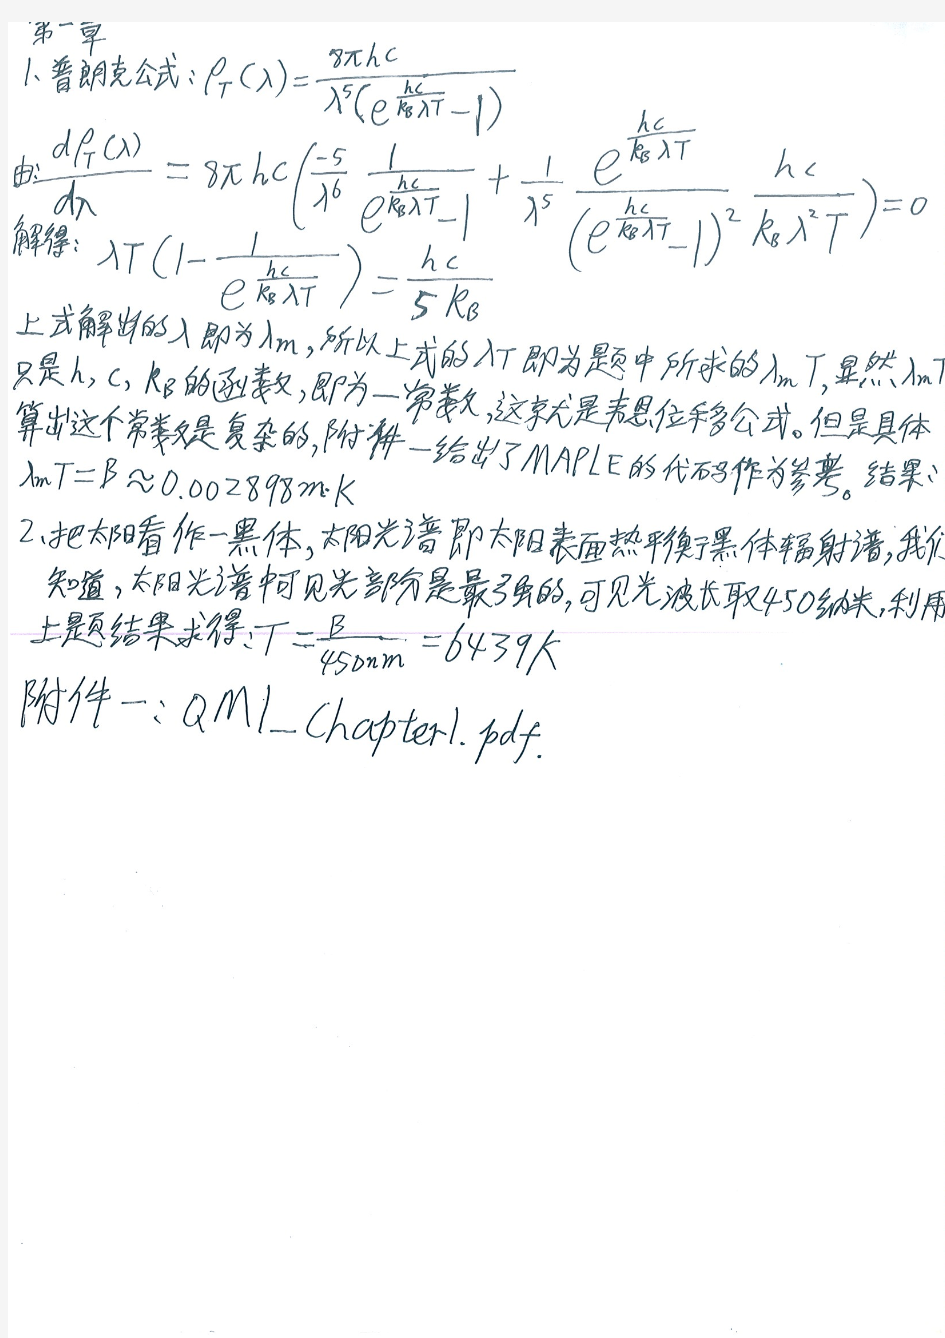 第一章
1、普朗克公式：ρ_T(λ) = 8πhc / (λ^5 (e^{hc/(k_BλT)} - 1))
由：dρ_T(λ)/dλ = 8πhc ( (-5/λ^6) · 1/(e^{hc/(k_BλT)} - 1) + (1/λ^5) · e^{hc/(k_BλT)}/(e^{hc/(k_BλT)} - 1)^2 · hc/(k_Bλ^2T) ) = 0
解得：λT (1 - 1/e^{hc/(k_BλT)}) = hc/(5k_B)
上式解出的λ即为λm，所以上式的λT即为题中所求的λmT，显然λmT
只是h, c, k_B的函数，即为一常数，这就是韦恩位移公式。但是具体
算出这个常数是复杂的，附件一给出了MAPLE的代码作为参考。结果：
λmT=B≈0.002898m·K
2、把太阳看作一黑体，太阳光谱即太阳表面热平衡于黑体辐射谱，我们
知道，太阳光谱中可见光部分是最强的，可见光波长取450纳米，利用
上题结果求得：T = B/450nm = 6439K
附件一：QM1_Chapter1.pdf.